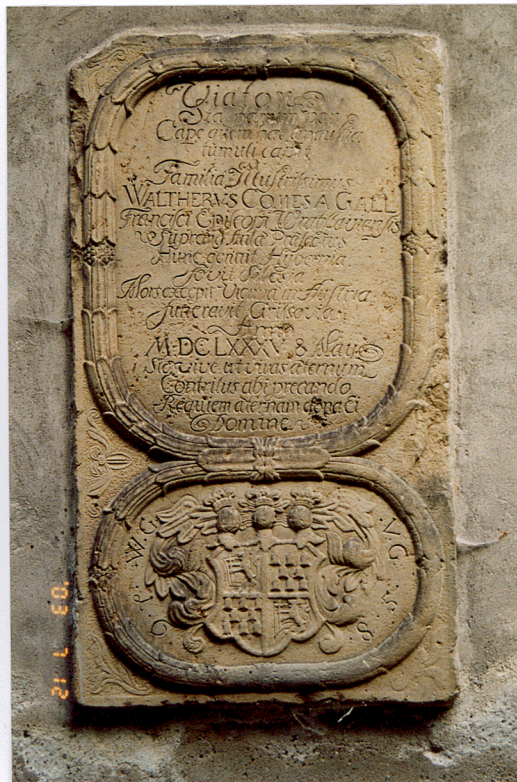 Viator
Cape quem
tumuli
Familia Illustrissimus
WALTHERVS COMES A GALL
Francisci Episcopi Wratislaviensis
Supremus Aulæ Præfectus
Hunc genuit Hybernia
fovit Silesia
Mors excepit Vienna in Austria
funeravit Grissovia
Anno
M·DCLXXXV 8 May
Sic vive ut vivas æternum
Contritus abi precando
Requiem æternam dona Ei
Domine
W G
V G
S
'03 7 12